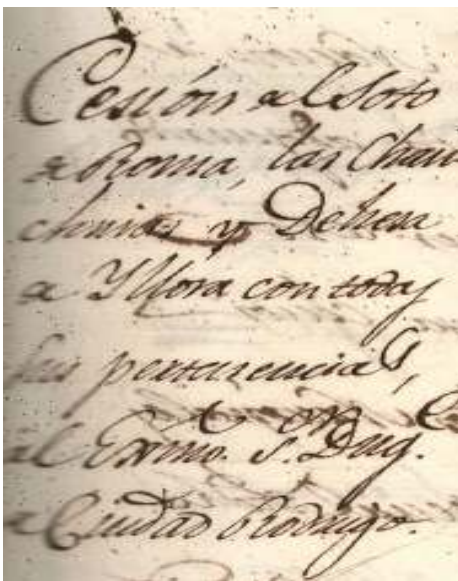 Cesión al Soto
a Roma, las Chau
chinas y Dehesa
a Yllora con todas
sus pertenencias,
al Exmo. S. Duq.
a Ciudad Rodrigo.